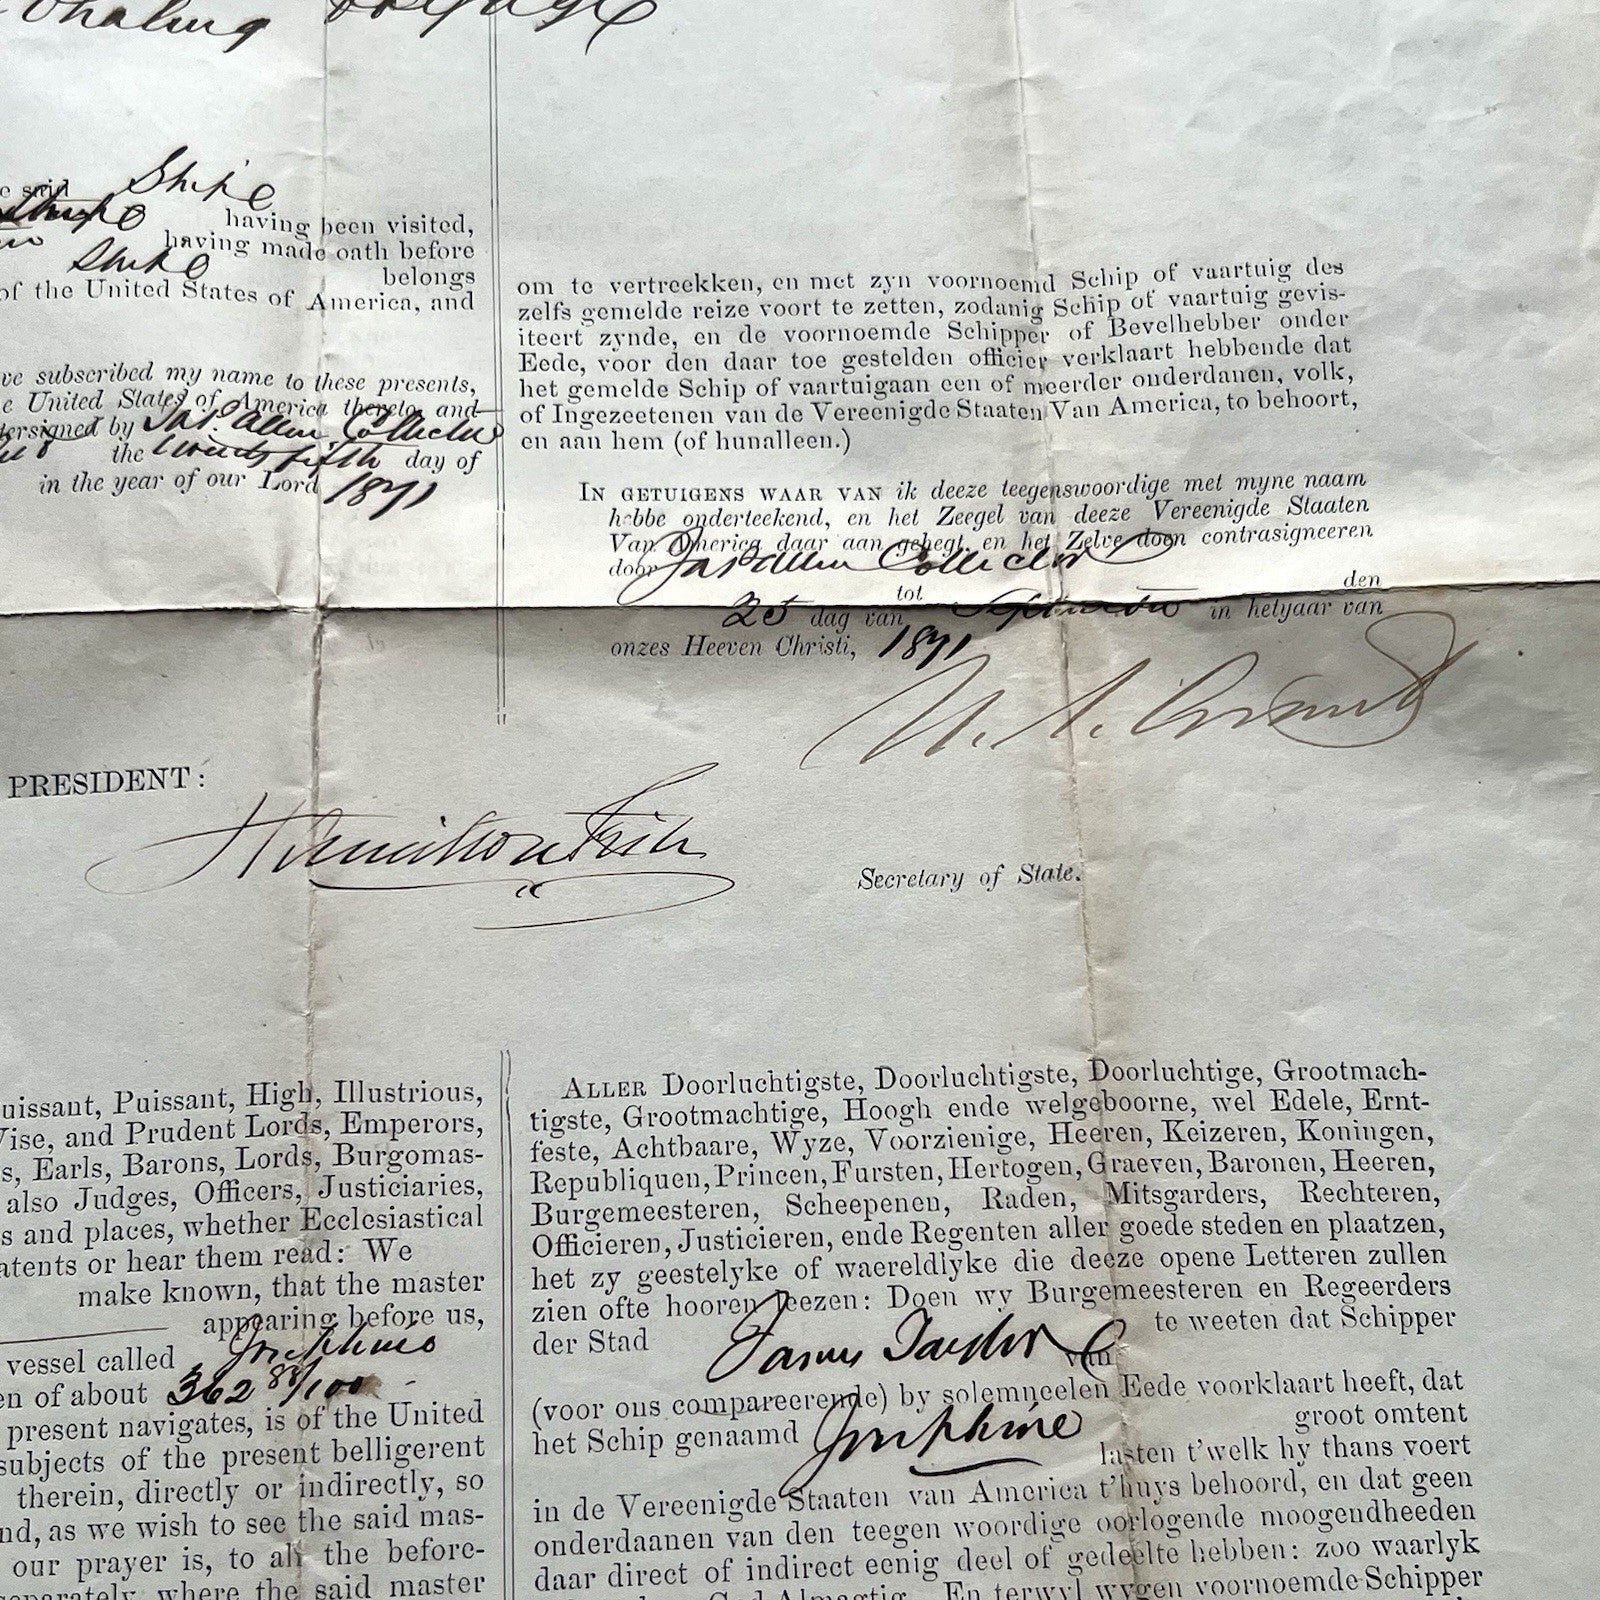 Whaling Voyage
e said Ship
Ship having been visited,
having made oath before
Ship belongs
of the United States of America, and
ve subscribed my name to these presents,
e United States of America thereto, and
tersigned by Jas. Allen Collector
the twenty fifth day of
in the year of our Lord 1871
om te vertreekken, en met zyn voornoemd Schip of vaartuig des
zelfs gemelde reize voort te zetten, zodanig Schip of vaartuig gevis-
iteert zynde, en de voornoemde Schipper of Bevelhebber onder
Eede, voor den daar toe gestelden officier verklaart hebbende dat
het gemelde Schip of vaartuigaan een of meerder onderdanen, volk,
of Ingezeetenen van de Vereenigde Staaten Van America, to behoort,
en aan hem (of hunalleen.)
IN GETUIGENS WAAR VAN ik deeze teegenswoordige met myne naam
hebbe onderteekend, en het Zeegel van deeze Vereenigde Staaten
Van America daar aan gehegt, en het Zelve doen contrasigneeren
door Jas Allen Collector
tot den
25 dag van September in hetyaar van
onzes Heeven Christi, 1871
U. S. Grant
PRESIDENT:
Hamilton Fish
Secretary of State.
uissant, Puissant, High, Illustrious,
Vise, and Prudent Lords, Emperors,
s, Earls, Barons, Lords, Burgomas-
also Judges, Officers, Justiciaries,
s and places, whether Ecclesiastical
atents or hear them read: We
make known, that the master
appearing before us,
vessel called Josephine
en of about 362 88/100
present navigates, is of the United
subjects of the present belligerent
therein, directly or indirectly, so
nd, as we wish to see the said mas-
our prayer is, to all the before-
separately, where the said master
ALLER Doorluchtigste, Doorluchtigste, Doorluchtige, Grootmach-
tigste, Grootmachtige, Hoogh ende welgeboorne, wel Edele, Ernt-
feste, Achtbaare, Wyze, Voorzienige, Heeren, Keizeren, Koningen,
Republiquen, Princen, Fursten, Hertogen, Graeven, Baronen, Heeren,
Burgemeesteren, Scheepenen, Raden, Mitsgarders, Rechteren,
Officieren, Justicieren, ende Regenten aller goede steden en plaatzen,
het zy geestelyke of waereldlyke die deeze opene Letteren zullen
zien ofte hooren leezen: Doen wy Burgemeesteren en Regeerders
der Stad te weeten dat Schipper
James Taylor van
(voor ons compareerende) by solemneelen Eede voorklaart heeft, dat
het Schip genaamd Josephine groot omtent
lasten t'welk hy thans voert
in de Vereenigde Staaten van America t'huys behoord, en dat geen
onderdaanen van den teegen woordige oorlogende moogendheeden
daar direct of indirect eenig deel of gedeelte hebben: zoo waarlyk
God Almagtig. En terwyl wygen voornoemde Schipper